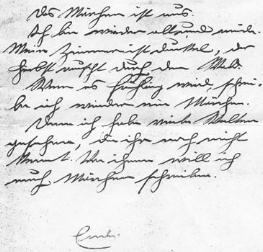 Das Märchen ist aus.
Ich bin wieder allein und müde.
Mein Zimmer ist dunkel, der
Herbst rauscht durch den Wald.
Wenn es Frühling wird, schrei-
be ich wieder ein Märchen.
Denn ich habe viele Welten
gesehen, die ihr noch nicht
kennt. Von ihnen will ich
euch Märchen schreiben.
Ende.